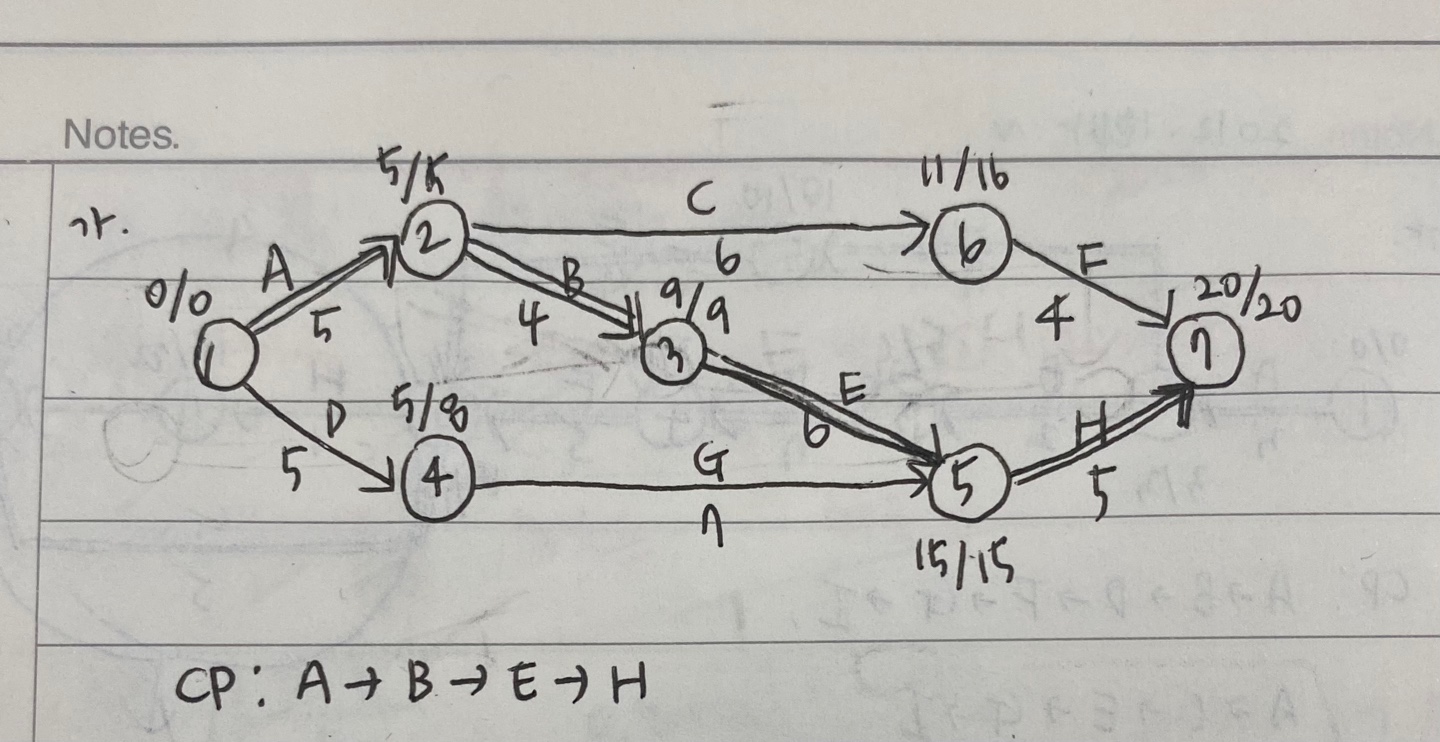 Notes.
가.
5/5
C
6
11/16
0/0
A
5
2
B
4
9/9
6
F
4
20/20
1
3
7
D
5
5/8
4
E
6
G
7
5
H
5
15/15
CP: A → B → E → H